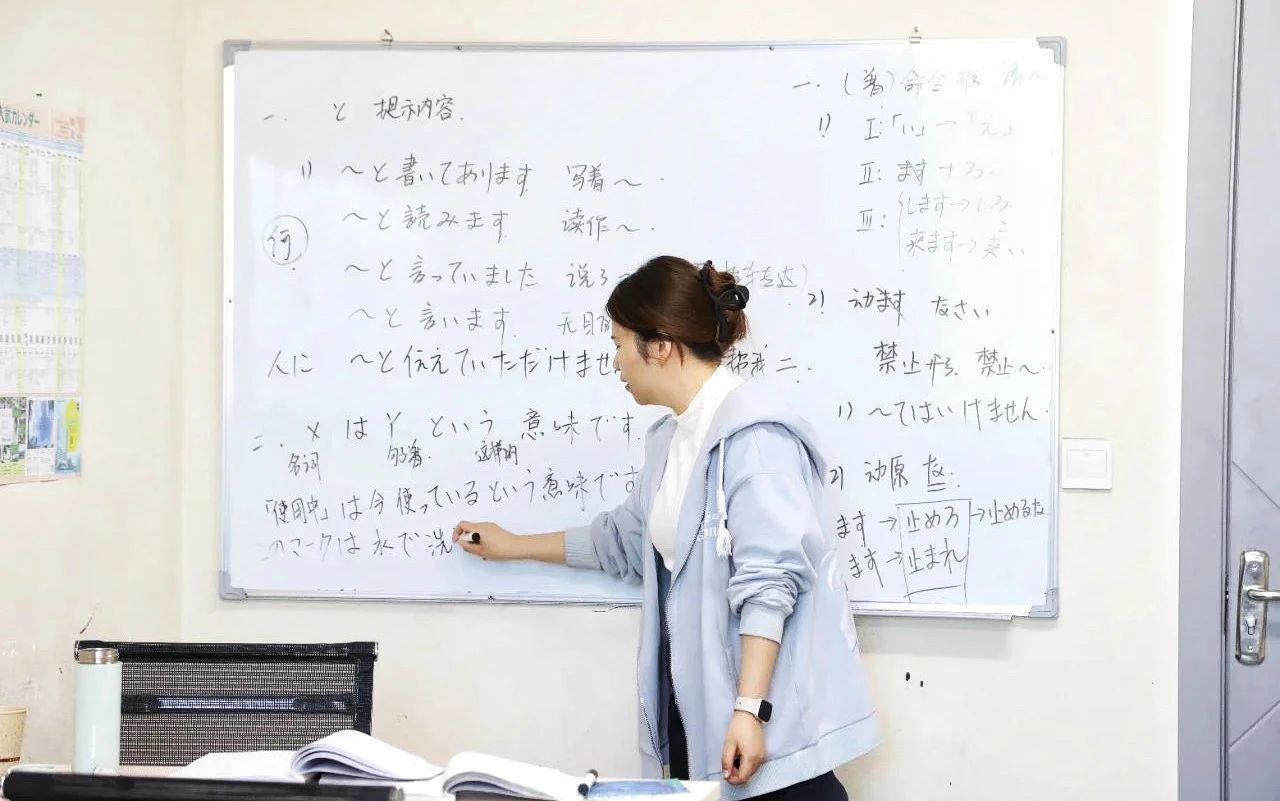 入試カレンダー
一. と 提示内容.
1) 〜と書いてあります 写着〜.
〜と読みます 读作〜.
何
〜と言っていました 说了〜
〜と言います. 无目
人に 〜と伝えていただけませ
二. X は Y という 意味です.
名词 句子/着. 这样的
「使用中」は今使っているという意味です
このマークは水で洗
一. (着) 命令形
1) I:「い」→「え」
II: ます→ろ
III: します→しろ
来ます→来い
2) 动ます なさい
二. 禁止形 禁止〜.
1) 〜てはいけません.
2) 动原 な.
ます→止めろ→止めるな
ます→止まれ